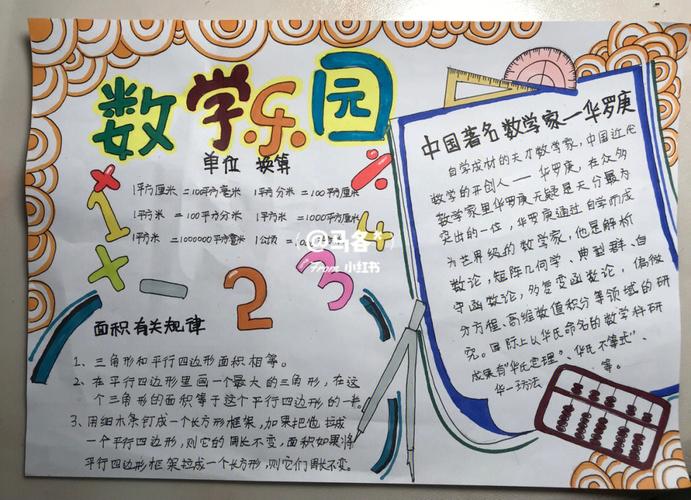 数学乐园
单位 换算
1平方厘米 =100平方毫米 1平方分米 =100平方厘米
1平方米 =100平方分米 1平方米 =1000平方厘米
1平方米 =1000000平方毫米 1公顷
1
2
3
4
@马客
From 小红书
面积有关规律
1、三角形和平行四边形面积相等。
2、在平行四边形里画一个最大的三角形，在这
个三角形的面积等于这个平行四边形的一半。
3、用细木条钉成一个长方形框架，如果把他拉成
一个平行四边形，则它的周长不变，面积如果将
平行四边形框架拉成一个长方形，则它们周长不变。
中国著名数学家—华罗庚
自学成材的天才数学家，中国近代
数学的开创人——华罗庚，在众多
数学家里华罗庚无疑是天分最为
突出的一位，华罗庚通过自学而成
为世界级的数学家，他是解析
数论，矩阵几何学、典型群、自
守函数论，多复变函数论，偏微
分方程、高维数值积分等领域的研
究。国际上以华氏命名的数学科研
成果有"华氏定理"、"华氏不等式"、
华—王方法 等。